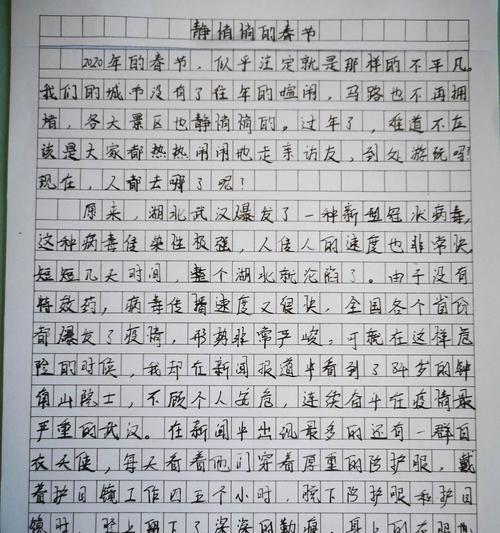 静悄悄的春节
2020年的春节，似乎注定就是那样的不平凡。
我们的城市没有了往年的喧闹，马路也不再拥
堵，各大景区也静悄悄的。过年了，难道不应
该是大家都热热闹闹地走亲访友，到处游玩吗？
现在，人都去哪了呢？
原来，湖北武汉爆发了一种新型冠状病毒，
这种病毒传染性极强，人传人的速度也非常快，
短短几天时间，整个湖北就沦陷了。由于没有
特效药，病毒传播速度又很快，全国各个省份
都爆发了疫情，形势非常严峻。可就在这样危
险的时候，我却在新闻报道中看到了84岁的钟
南山院士，不顾个人安危，连续奋斗在疫情最
严重的武汉。在新闻中出现最多的还有一群白
衣天使，每天看着他们穿着厚重的防护服，戴
着护目镜工作四五个小时，脱下防护服和护目
镜时，脸上留下了深深的勒痕，身上的衣服